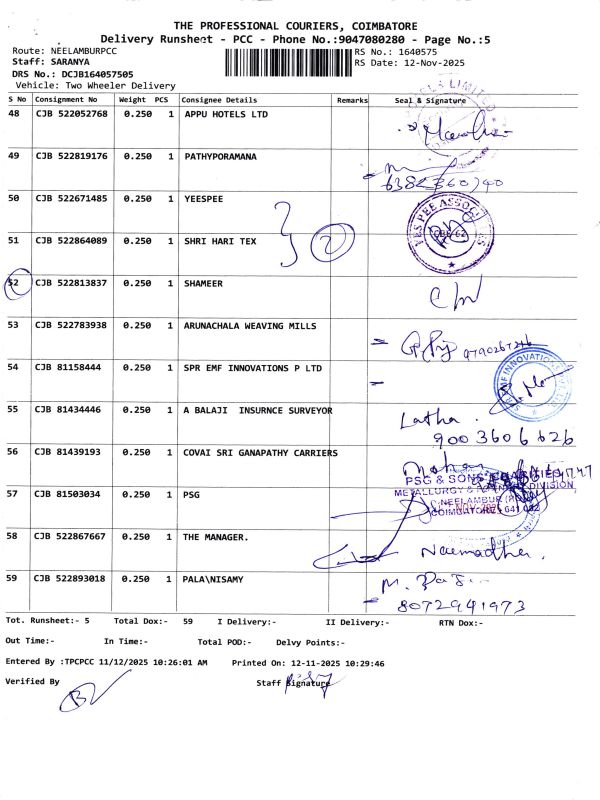 THE PROFESSIONAL COURIERS, COIMBATORE
Delivery Runsheet - PCC - Phone No.:9047080280 - Page No.:5
Route: NEELAMBURPCC
Staff: SARANYA
DRS No.: DCJB164057505
Vehicle: Two Wheeler Delivery
RS No.: 1640575
RS Date: 12-Nov-2025
S No Consignment No Weight PCS Consignee Details Remarks Seal & Signature
48 CJB 522052768 0.250 1 APPU HOTELS LTD
49 CJB 522819176 0.250 1 PATHYPORAMANA
6382360740
50 CJB 522671485 0.250 1 YEESPEE
YES PEE ASSOCIATES
51 CJB 522864089 0.250 1 SHRI HARI TEX
2
52 CJB 522813837 0.250 1 SHAMEER
53 CJB 522783938 0.250 1 ARUNACHALA WEAVING MILLS
54 CJB 81158444 0.250 1 SPR EMF INNOVATIONS P LTD
55 CJB 81434446 0.250 1 A BALAJI INSURNCE SURVEYOR
Latha.
9003606626
56 CJB 81439193 0.250 1 COVAI SRI GANAPATHY CARRIERS
Mohan
PSG & SONS
METALLURGY & DIVISION
NEELAMBUR
COIMBATORE 641 062
57 CJB 81503034 0.250 1 PSG
58 CJB 522867667 0.250 1 THE MANAGER.
59 CJB 522893018 0.250 1 PALA\NISAMY
8072941973
Tot. Runsheet:- 5 Total Dox:- 59 I Delivery:- II Delivery:- RTN Dox:-
Out Time:- In Time:- Total POD:- Delvy Points:-
Entered By :TPCPCC 11/12/2025 10:26:01 AM Printed On: 12-11-2025 10:29:46
Verified By Staff Signature